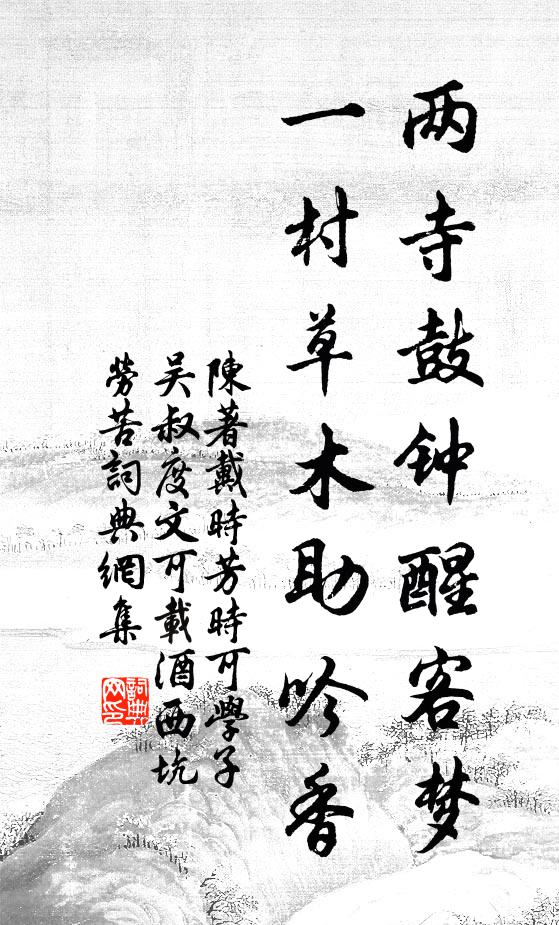 两寺鼓钟醒客梦
一村草木助吟香
陳著戴時芳時可學子
吴叔度文可載酒西坑
勞苦詞典網集
詞典
网印